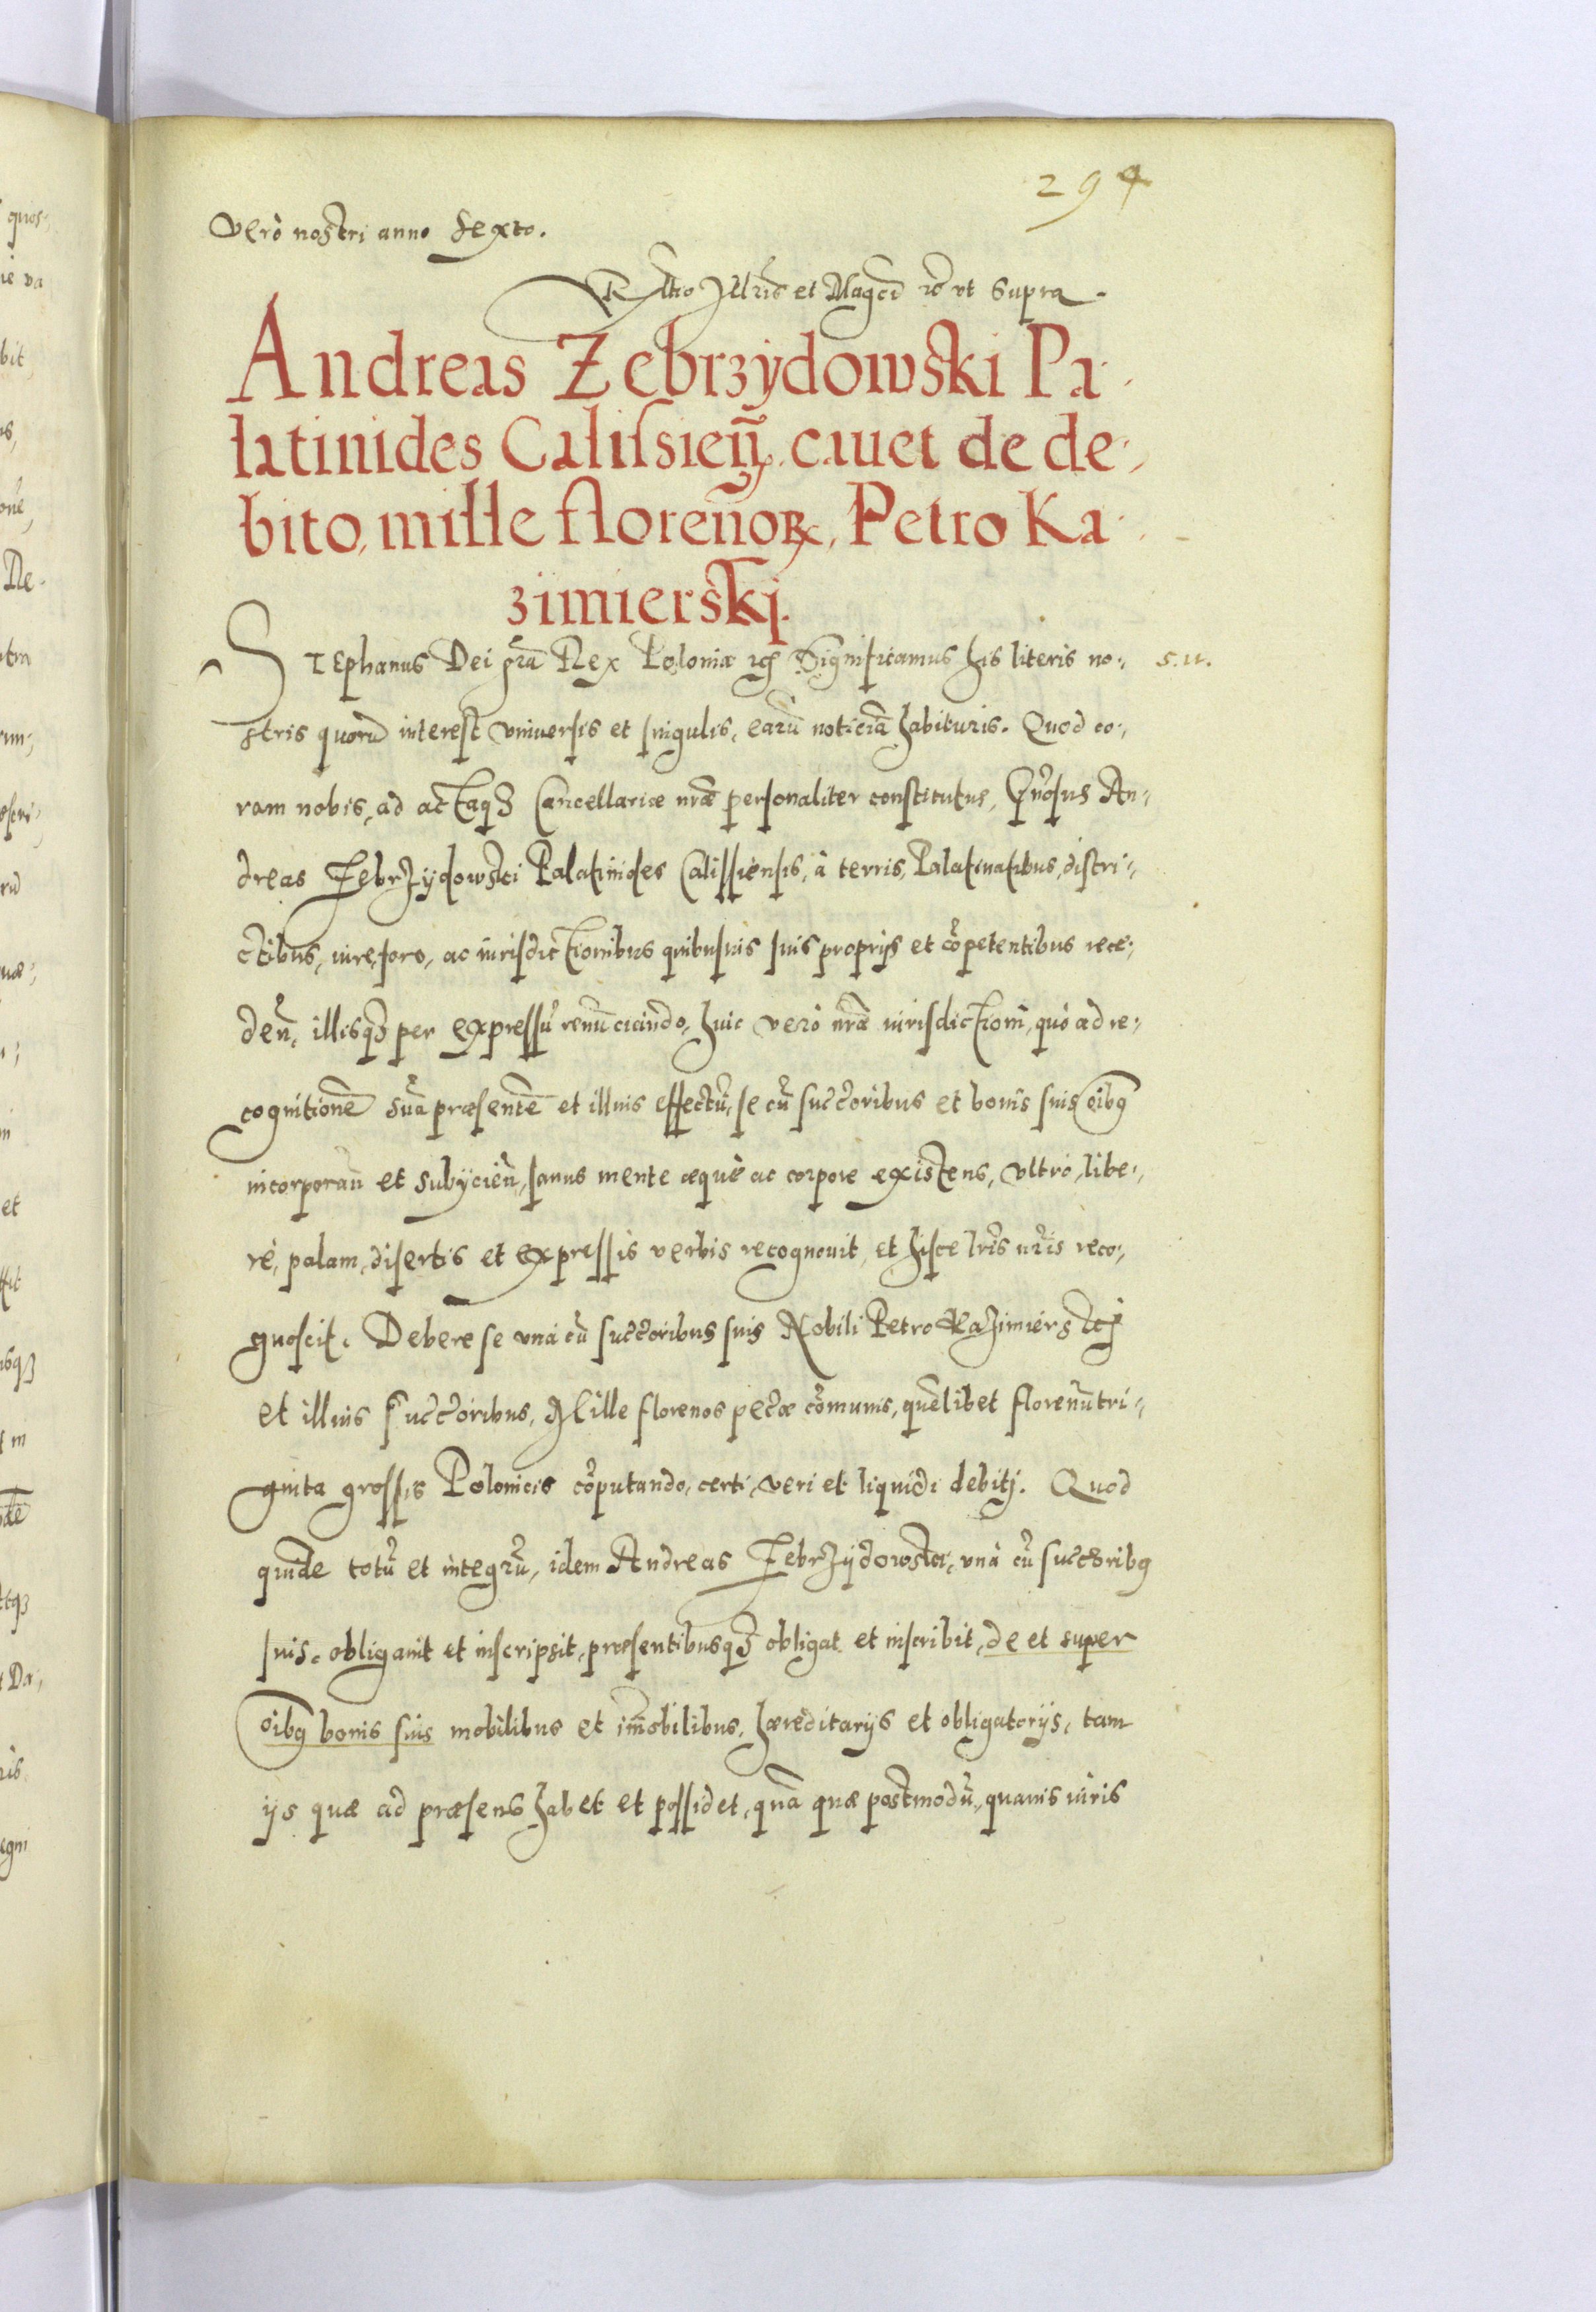 294
vero nostri anno Sexto.
Rlãtio Illris et Magci rc ut supra.
Andreas Zebrzÿdowski Pa-
latinides Calissieñ. cauet de de-
bito, mille floreñoꝝ, Petro Ka-
zimierskj.
STEphanus Dei grã Rex Poloniæ rcꝭ Significamus his literis no- s.u.
stris quorũ interest vniuersis et singulis, earũ noticiã habituris. Quod co-
ram nobis, ad actaqꝫ Cancellariæ nrãe personaliter constitutus, Gñosus An-
dreas Zebrzÿdowski Palatinides Calissiensis, à terris, Palatinatibus, distri-
ctibus, iure, foro, ac iurisdictionibus quibusuis suis proprijs et cõpetentibus rece-
deñ, illisqꝫ per expressũ renũciando, huic verò nrãe iurisdictioni, quò ad re-
cognitionẽ suã præsentẽ et illius effectũ, se cũ succ̃oribus et bonis suis oĩbꝯ
incorporañ et subijcieñ, sanus mente æquè ac corpore existens, vltrò, libe-
rè, palam, disertis et expressis verbis recognouit, et hisce lr̃is nr̃is reco-
gnoscit. Debere se vnà cũ succ̃oribus suis Nobili Petro Kazimierskj
et illius succ̃oribus, Mille florenos pec̃æ cõmunis, quẽlibet florenũ tri-
ginta grossis Polonicis cõputando, certi, veri et liquidi debitj. Quod
quidẽ totũ et integrũ, idem Andreas Zebrzÿdowski, vnà cũ succ̃oribꝯ
suis, obligauit et inscripsit, præsentibusqꝫ obligat et inscribit, de et super
oĩbꝯ bonis suis mobilibus et im̃obilibus, hæreditarijs et obligatorijs, tam
ijs quæ ad præsens habet et possidet, quã quæ postmodũ, quauis iuris